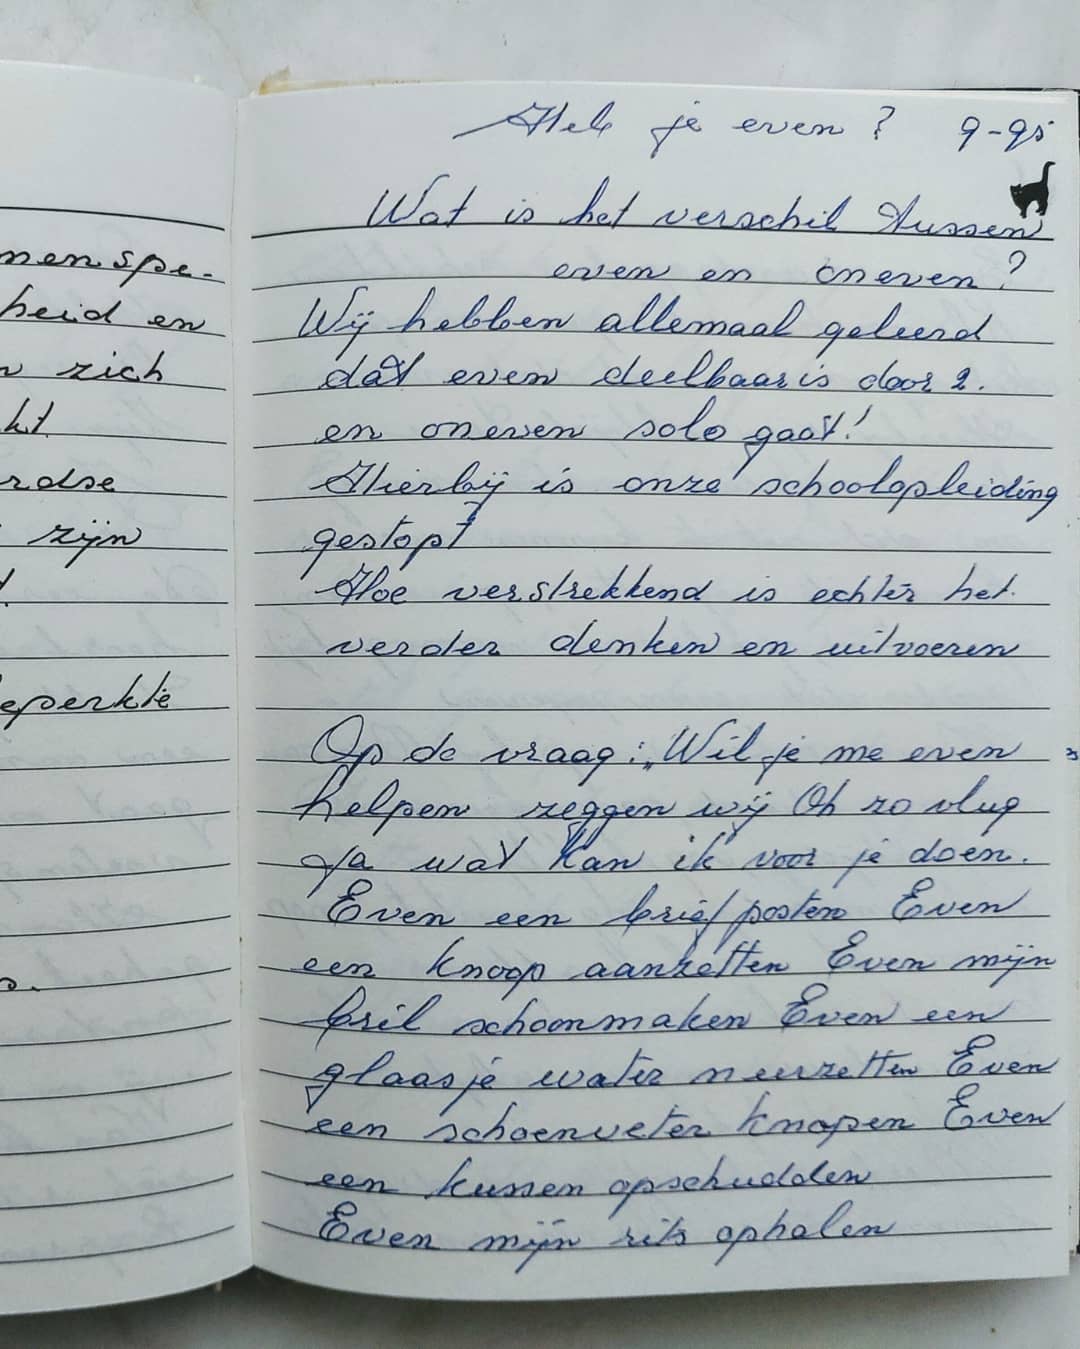 menspe-
heid en
zich
kt
rdse
zijn
eperkte
Heb je even? 9-95
Wat is het verschil tussen
even en oneven?
Wij hebben allemaal geleerd
dat even deelbaar is door 2.
en oneven solo gaat!
Hierbij is onze schoolopleiding
gestopt
Hoe verstrekkend is echter het.
verder denken en uitvoeren
Op de vraag: „Wil je me even
helpen zeggen wij Oh zo vlug
Ja wat kan ik voor je doen.
Even een brief posten Even
een knoop aanzetten Even mijn
bril schoonmaken Even een
glaasje water neerzetten Even
een schoenveter knopen Even
een kussen opschudden
Even mijn rits ophalen